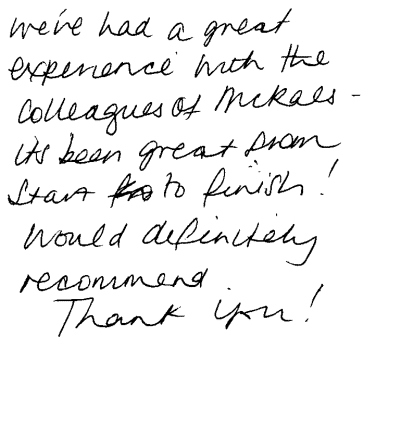 We've had a great
experience with the
Colleagues of McKaels -
its been great from
Start to finish!
Would definitely
recommend
Thank you!